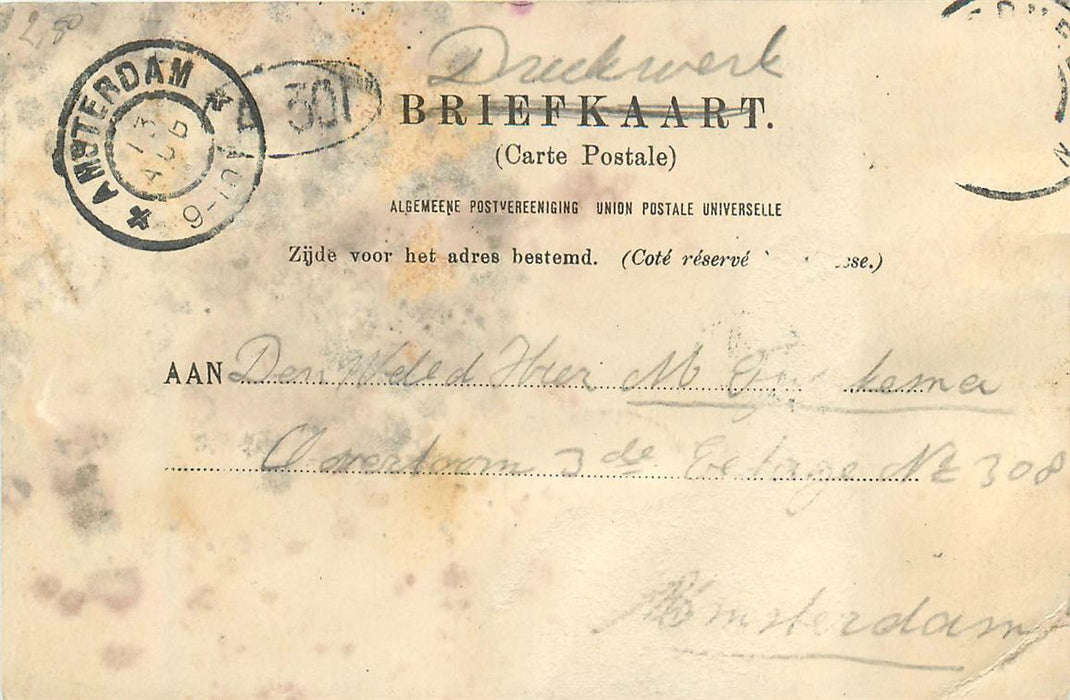 2,50
AMSTERDAM
13 AUG
9-10V
301
Drukwerk
BRIEFKAART.
(Carte Postale)
ALGEMEENE POSTVEREENIGING UNION POSTALE UNIVERSELLE
Zijde voor het adres bestemd. (Coté réservé
AAN Den WEled Heer M kema
Overtoom 3de Eetage 308
Amsterdam